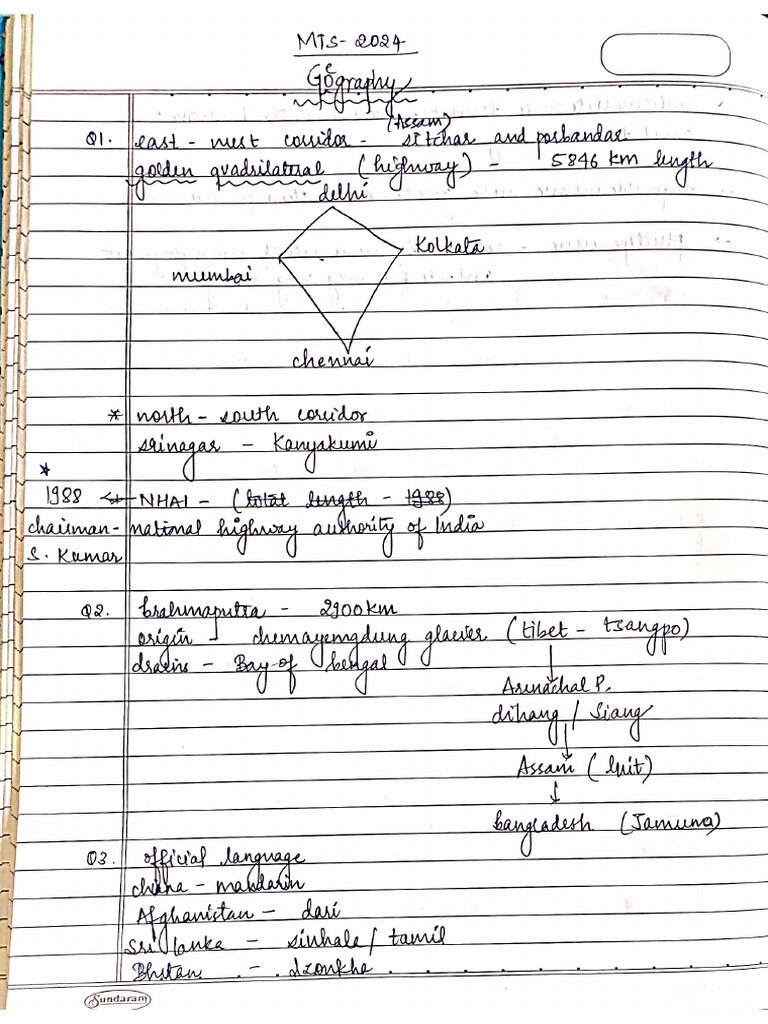 MTS- 2024
Geography
(Assam)
Q1. east - west corridor - silchar and porbandar
golden quadrilateral (highway) - 5846 km length
delhi
Kolkata
mumbai
chennai
* north - south corridor
srinagar - Kanyakumi
*
1988 ← NHAI - (total length - 1988)
chairman - national highway authority of India
S. Kumar
Q2. brahmaputra - 2900 km
origin - chemayemgdung glacier (tibet - tsangpo)
drains - Bay of bengal
Arunachal P.
dihang / Siang
Assam (luit)
↓
bangladesh (Jamuna)
Q3. official language
china - mandarin
Afghanistan - dari
Sri lanka - sinhale / tamil
Bhutan - dzonkha
Sundaram